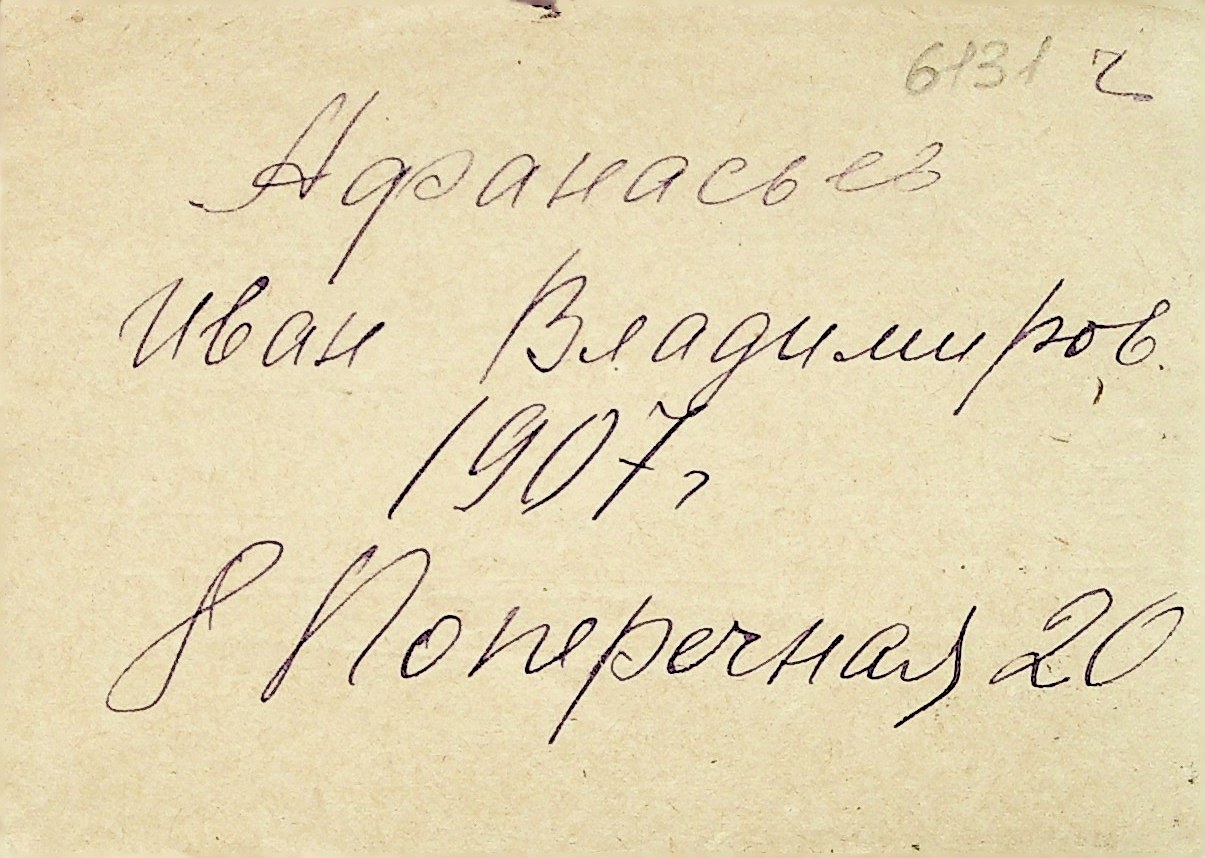 6131 ч
Афанасьев
Иван Владимиров.
1907 г
8 Поперечная 20